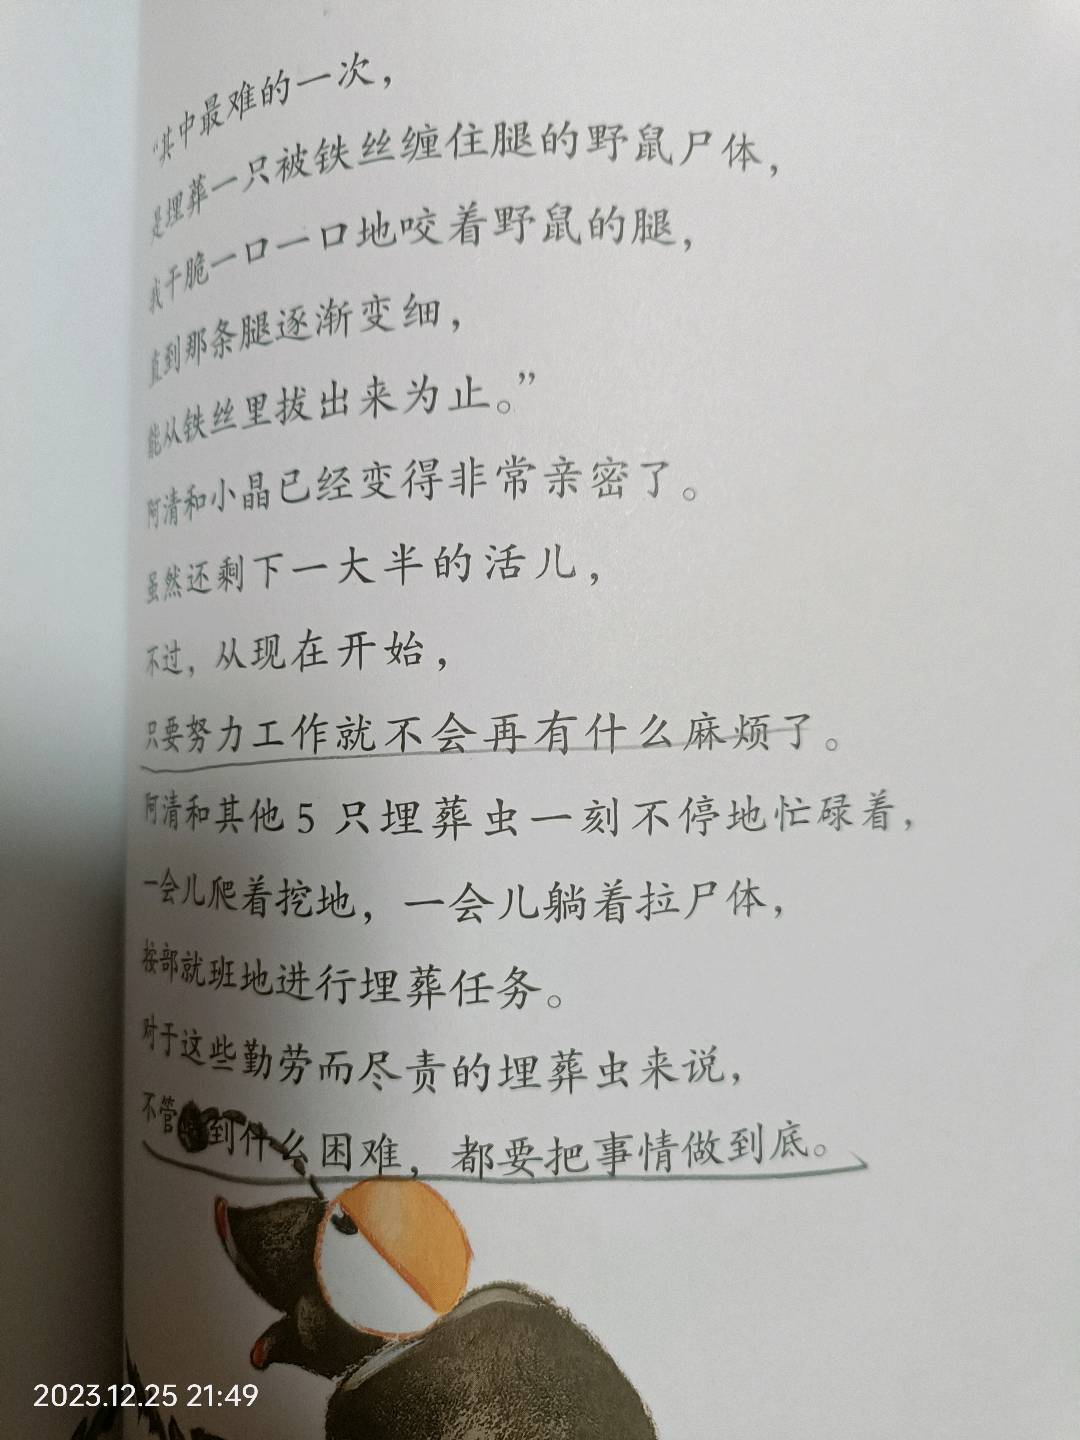 “其中最难的一次，
是埋葬一只被铁丝缠住腿的野鼠尸体，
我干脆一口一口地咬着野鼠的腿，
直到那条腿逐渐变细，
能从铁丝里拔出来为止。”
阿清和小晶已经变得非常亲密了。
虽然还剩下一大半的活儿，
不过，从现在开始，
只要努力工作就不会再有什么麻烦了。
阿清和其他5只埋葬虫一刻不停地忙碌着，
一会儿爬着挖地，一会儿躺着拉尸体，
按部就班地进行埋葬任务。
对于这些勤劳而尽责的埋葬虫来说，
不管到什么困难，都要把事情做到底。
2023.12.25 21:49